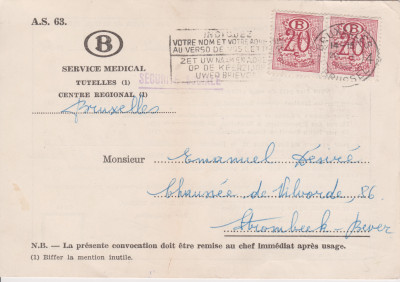 A.S. 63.
B
SERVICE MEDICAL
TUTELLES (1)
CENTRE REGIONAL (1)
Bruxelles
INDIQUEZ
VOTRE NOM ET VOTRE
AU VERSO DE
ZET UW
OP DE
UWER BRIEVEN
B
20
B
20
Monsieur Emanuel Désiré
Chaussée de Vilvorde, 86
Strombeek-Bever
N.B. — La présente convocation doit être remise au chef immédiat après usage.
(1) Biffer la mention inutile.